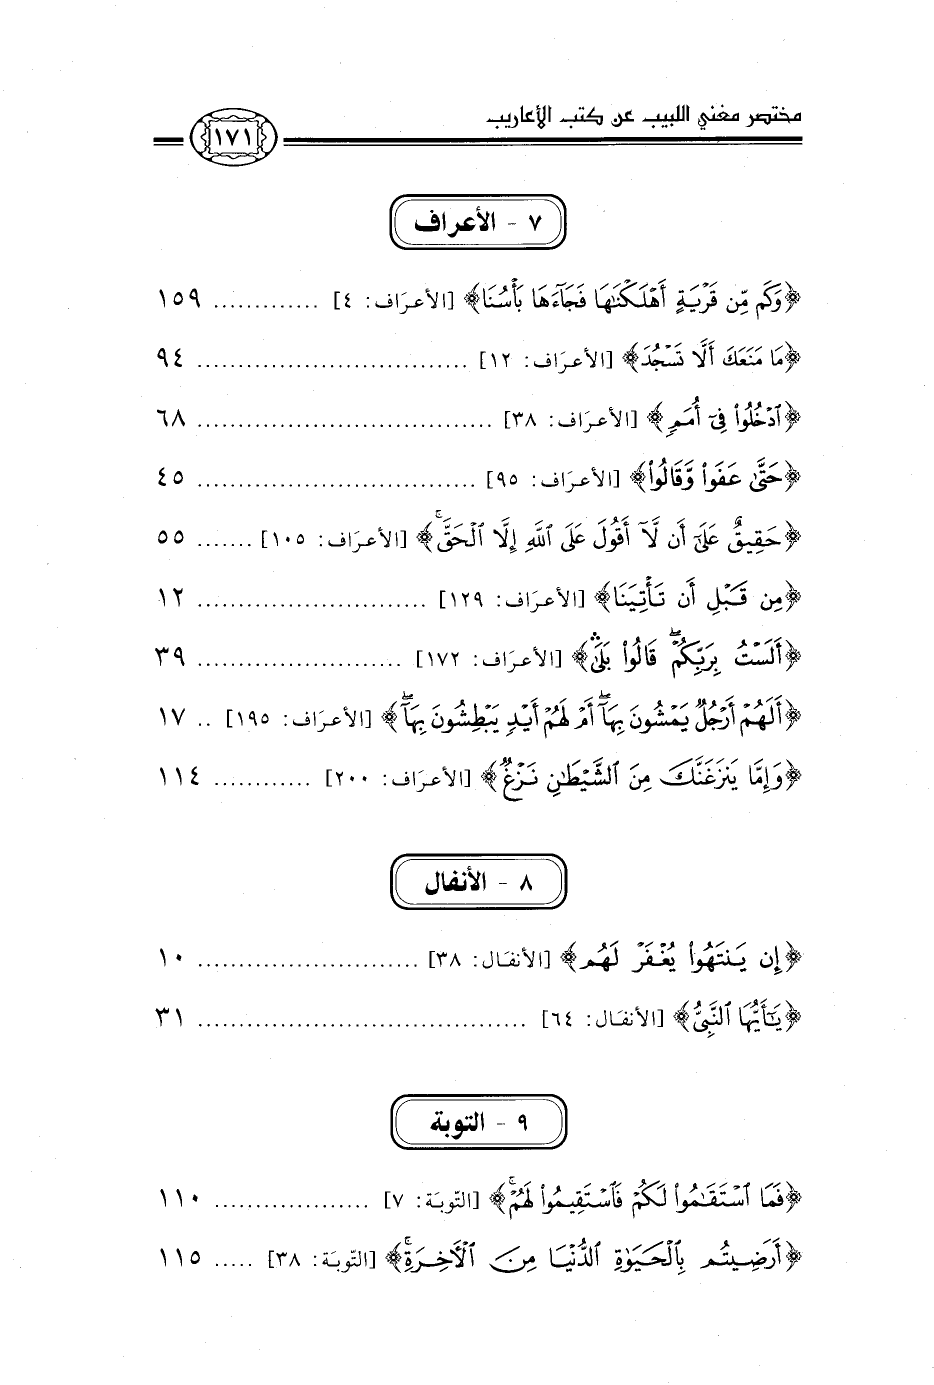 مختصر مغني اللبيب عن كتب الأعاريب
١٧١
٧ - الأعراف
﴿وَكَم مِّن قَرْيَةٍ أَهْلَكْنَٰهَا فَجَآءَهَا بَأْسُنَا﴾ [الأعرَاف: ٤] ............. ١٥٩
﴿مَا مَنَعَكَ أَلَّا تَسْجُدَ﴾ [الأعرَاف: ١٢] ................................. ٩٤
﴿ٱدْخُلُوا۟ فِىٓ أُمَمٍ﴾ [الأعرَاف: ٣٨] .................................... ٦٨
﴿حَتَّىٰ عَفَوا۟ وَّقَالُوا۟﴾ [الأعرَاف: ٩٥] .................................. ٤٥
﴿حَقِيقٌ عَلَىٰٓ أَن لَّآ أَقُولَ عَلَى ٱللَّهِ إِلَّا ٱلْحَقَّۚ﴾ [الأعرَاف: ١٠٥] ....... ٥٥
﴿مِن قَبْلِ أَن تَأْتِيَنَا﴾ [الأعرَاف: ١٢٩] ............................ ١٢
﴿أَلَسْتُ بِرَبِّكُمْۖ قَالُوا۟ بَلَىٰۛ﴾ [الأعرَاف: ١٧٢] ......................... ٣٩
﴿أَلَهُمْ أَرْجُلٌ يَمْشُونَ بِهَآۖ أَمْ لَهُمْ أَيْدٍ يَبْطِشُونَ بِهَآۖ﴾ [الأعرَاف: ١٩٥] .. ١٧
﴿وَإِمَّا يَنزَغَنَّكَ مِنَ ٱلشَّيْطَٰنِ نَزْغٌ﴾ [الأعرَاف: ٢٠٠] ............ ١١٤
٨ - الأنفال
﴿إِن يَنتَهُوا۟ يُغْفَرْ لَهُم﴾ [الأنفَال: ٣٨] ........................... ١٠
﴿يَٰٓأَيُّهَا ٱلنَّبِىُّ﴾ [الأنفَال: ٦٤] ........................................ ٣١
٩ - التوبة
﴿فَمَا ٱسْتَقَٰمُوا۟ لَكُمْ فَٱسْتَقِيمُوا۟ لَهُمْۚ﴾ [التّوبَة: ٧] ................... ١١٠
﴿أَرَضِيتُم بِٱلْحَيَوٰةِ ٱلدُّنْيَا مِنَ ٱلْـَٔاخِرَةِۚ﴾ [التّوبَة: ٣٨] ..... ١١٥